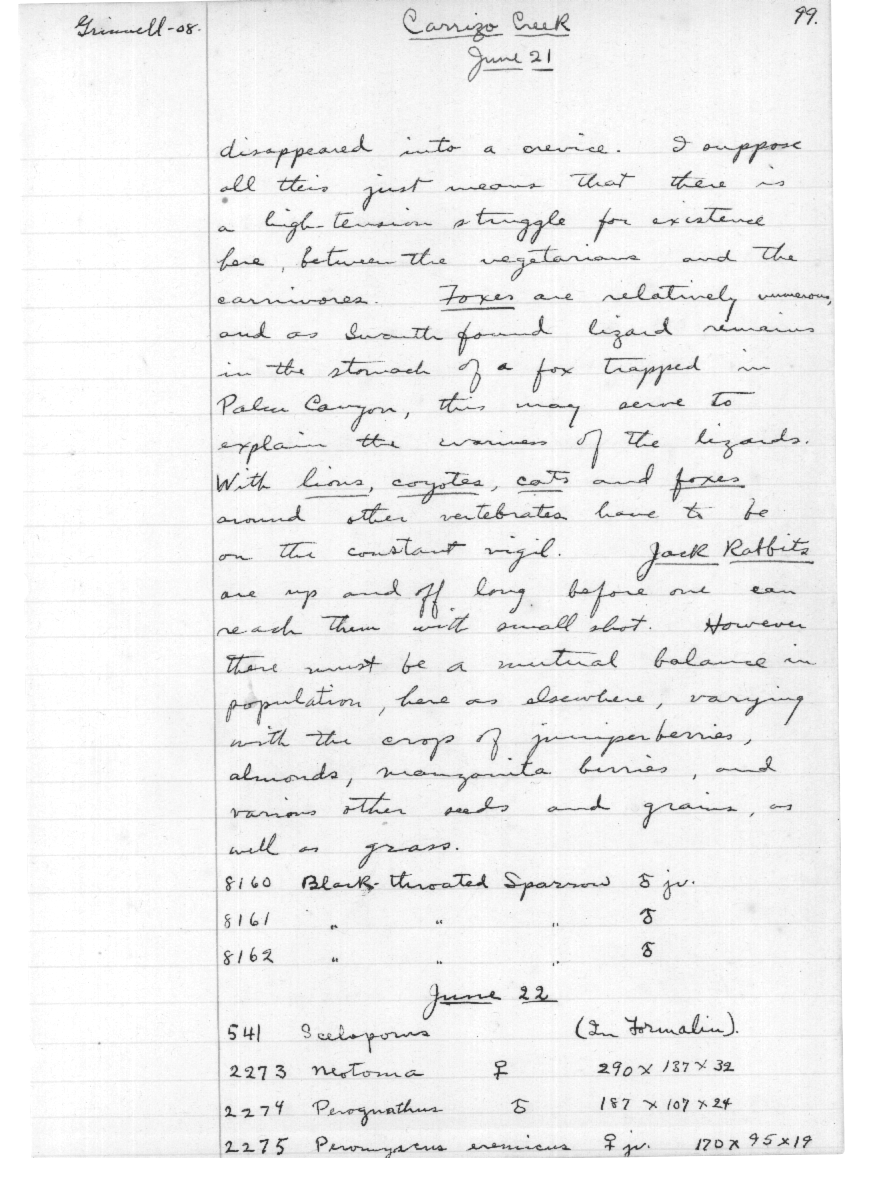 Grinnell-08.
Carrizo Creek
99.
June 21
disappeared into a crevice. I suppose
all this just means that there is
a high-tension struggle for existence
here, between the vegetarians and the
carnivores. Foxes are relatively numerous,
and as Swarth found lizard remains
in the stomach of a fox trapped in
Palm Canyon, this may serve to
explain the wariness of the lizards.
With lions, coyotes, cats and foxes
around other vertebrates have to be
on the constant vigil. Jack Rabbits
are up and off long before one can
reach them with small shot. However
there must be a mutual balance in
population, here as elsewhere, varying
with the crop of juniper berries,
almonds, manzanita berries, and
various other seeds and grains, as
well as grass.
8160 Black-throated Sparrow ♂ jv.
8161 " " " ♂
8162 " " " ♂
June 22
541 Sceloporus (In Formalin).
2273 Neotoma ♀ 290 x 137 x 32
2274 Perognathus ♂ 187 x 107 x 24
2275 Peromyscus eremicus ♀ jv. 170 x 95 x 19